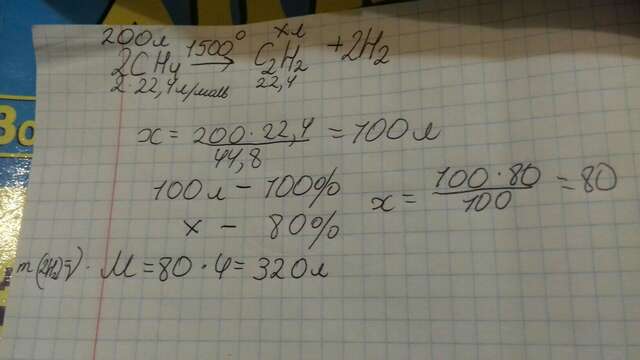 200л 1500° xл
2CH₄ → C₂H₂ + 2H₂
2·22,4л/моль 22,4
x = 200·22,4 / 44,8 = 100л
100л – 100%
x – 80% x = 100·80 / 100 = 80
m(2H₂)=V· M = 80·4 = 320л